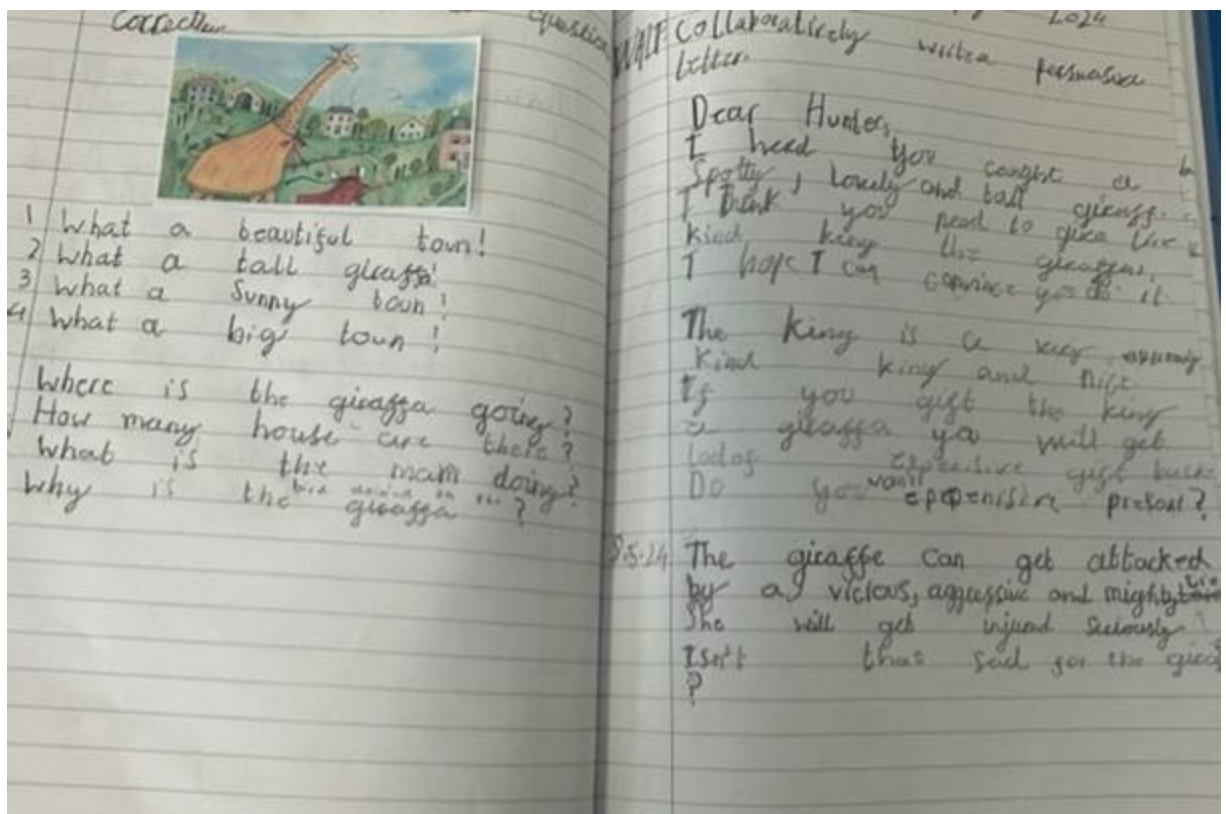 correctly question
1 What a beautiful town!
2 What a tall giraffa!
3 What a Sunny town!
4 What a big town!
Where is the giraffa going?
How many house are there?
What is the man doing?
Why is the giraffa ?
2024
WALT Collaboratively write a persuasive
letter.
Dear Hunters,
I head you caught a
Spotty, lovely and tall giraff.
I think you need to give the
kind king the giraffes.
I hope I can convince you it
The King is a very
Kind king and nice
If you gift the king
a giraffa ya will get
expensive gift back
Do you want present?
9.5.24 The giraffe can get attacked
by a vicious, aggressive and mighty
She will get injured Seriously
Isn't that sad for the
?